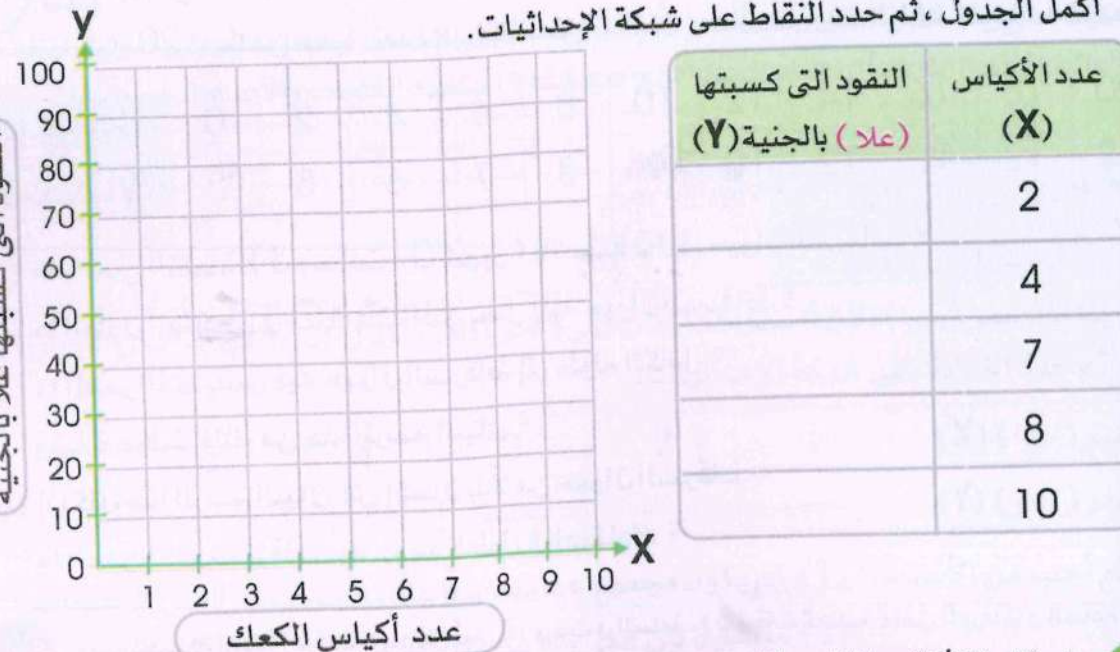 أكمل الجدول، ثم حدد النقاط على شبكة الإحداثيات.
عدد الأكياس النقود التى كسبتها
(X) (علا) بالجنية (Y)
2
4
7
8
10
Y
100
90
80
70
60
50
40
30
20
10
0
1 2 3 4 5 6 7 8 9 10
X
عدد أكياس الكعك
علا بالجنية